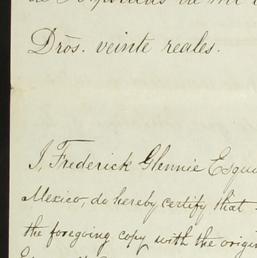 Drōs. veinte reales.
I, Frederick Glennie Esqu
Mexico, do hereby certify that
the foregoing copy with the origin